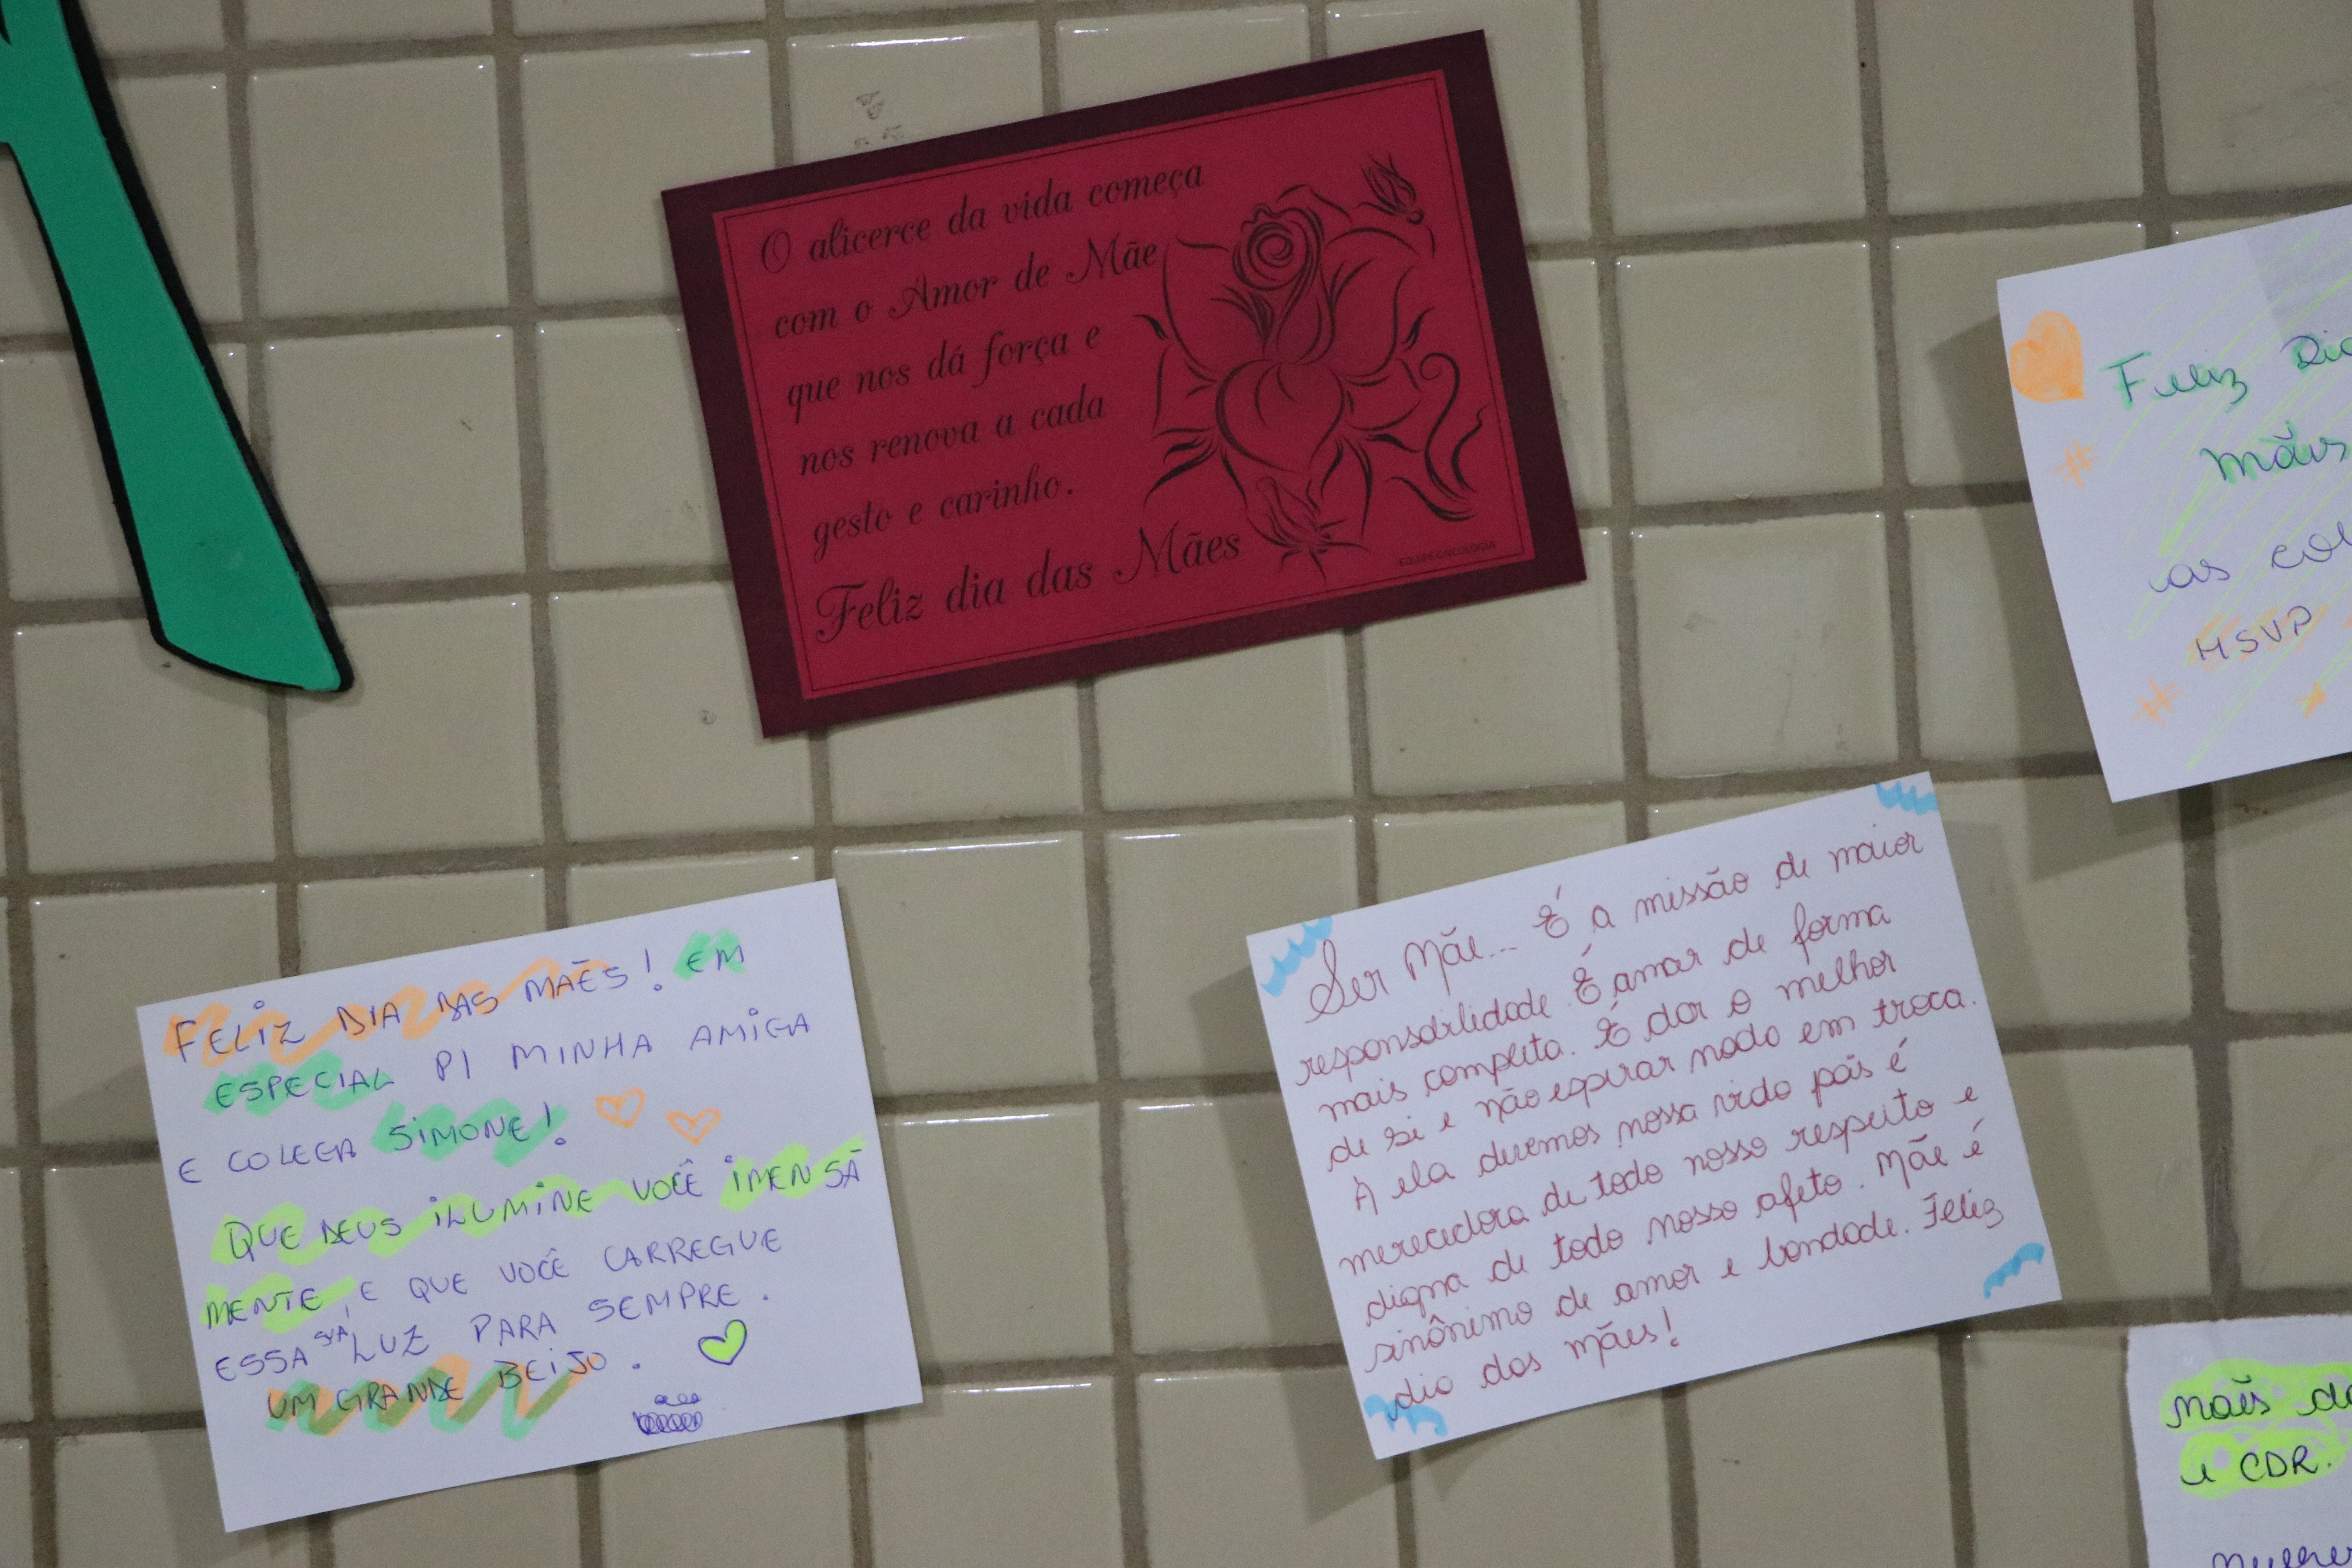 O alicerce da vida começa
com o Amor de Mãe
que nos dá força e
nos renova a cada
gesto e carinho.
Feliz dia das Mães
EQUIPE ONCOLOGIA
Feliz Dia
mães
as col
HSVP
FELIZ DIA DAS MAÊS! EM
ESPECIAL P/ MINHA AMIGA
E COLEGA SIMONE!
QUE DEUS ILUMINE VOCÊ IMENSA
MENTE, E QUE VOCÊ CARREGUE
ESSA SUA LUZ PARA SEMPRE.
UM GRANDE BEIJO.
Ser Mãe... É a missão de maior
responsabilidade. É amar de forma
mais completa. É dar o melhor
de si e não esperar nada em troca.
A ela devemos nossa vida pois é
merecedora de todo nosso respeito e
digna de todo nosso afeto. Mãe é
sinônimo de amor e bondade. Feliz
dia das mães!
mães de
e CDR.